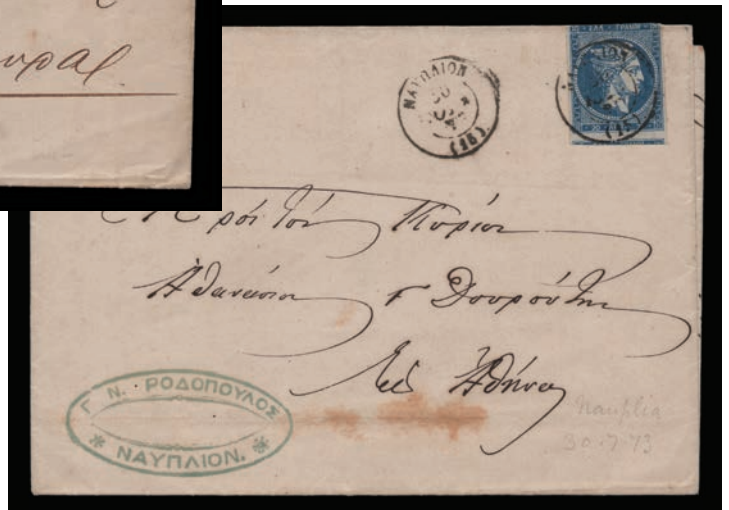 ΝΑΥΠΛΙΟΝ
30
(15)
ΝΑΥΠΛΙΟΝ
(15)
Πρός Τόν Κύριον
Ἀθανάσιον Γ Δουρούτην
Εἰς Ἀθήνας
Γ. Ν. ΡΟΔΟΠΟΥΛΟΣ
ΝΑΥΠΛΙΟΝ.
Nauplia
30-7-73